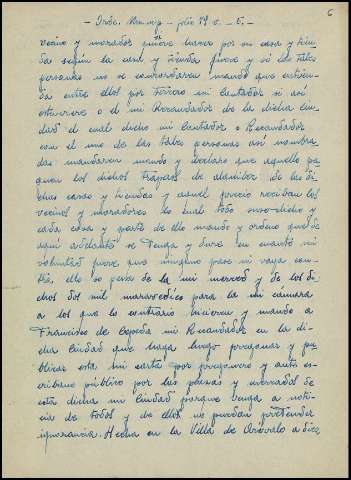 6
- Orde. Mun.cip - folio 29 v. - 6. -
vecino y morador quiere hacer por su casa y tien-
da segun la casa y tienda fuere y si las tales
personas no se concordaren mando que entien-
da entre ellos por tercero mi Contador si asi
estuviere o el mi Recaudador de la dicha Ciu-
dad el cual dicho mi Contador o Recaudador
con el uno de las tales personas asi nombra-
das mandaren mando y declaro que aquello pa-
guen los dichos traperos de alquiler de las di-
chas casas y tiendas y aquel precio reciban los
vecinos y moradores lo cual todo suso-dicho y
cada cosa y parte de ello mando y ordeno que de
aqui adelante se tenga y dure en cuanto mi
voluntad fuere que ninguno pase ni vaya con-
tra ello so pena de la mi merced y de los di-
chos dos mil maravedies para la mi cámara
a los que lo contrario hicieren y mando a
Francisco de Cepeda mi Recaudador en la di-
cha Ciudad que haga luego pregonar y pu-
blicar esta mi carta por pregonero y ante es-
cribano público por las plazas y mercados de
esta dicha mi Ciudad porque venga a noti-
cia de todos y de ello no puedan pretender
ignorancia. Hecha en la Villa de Arévalo a diez